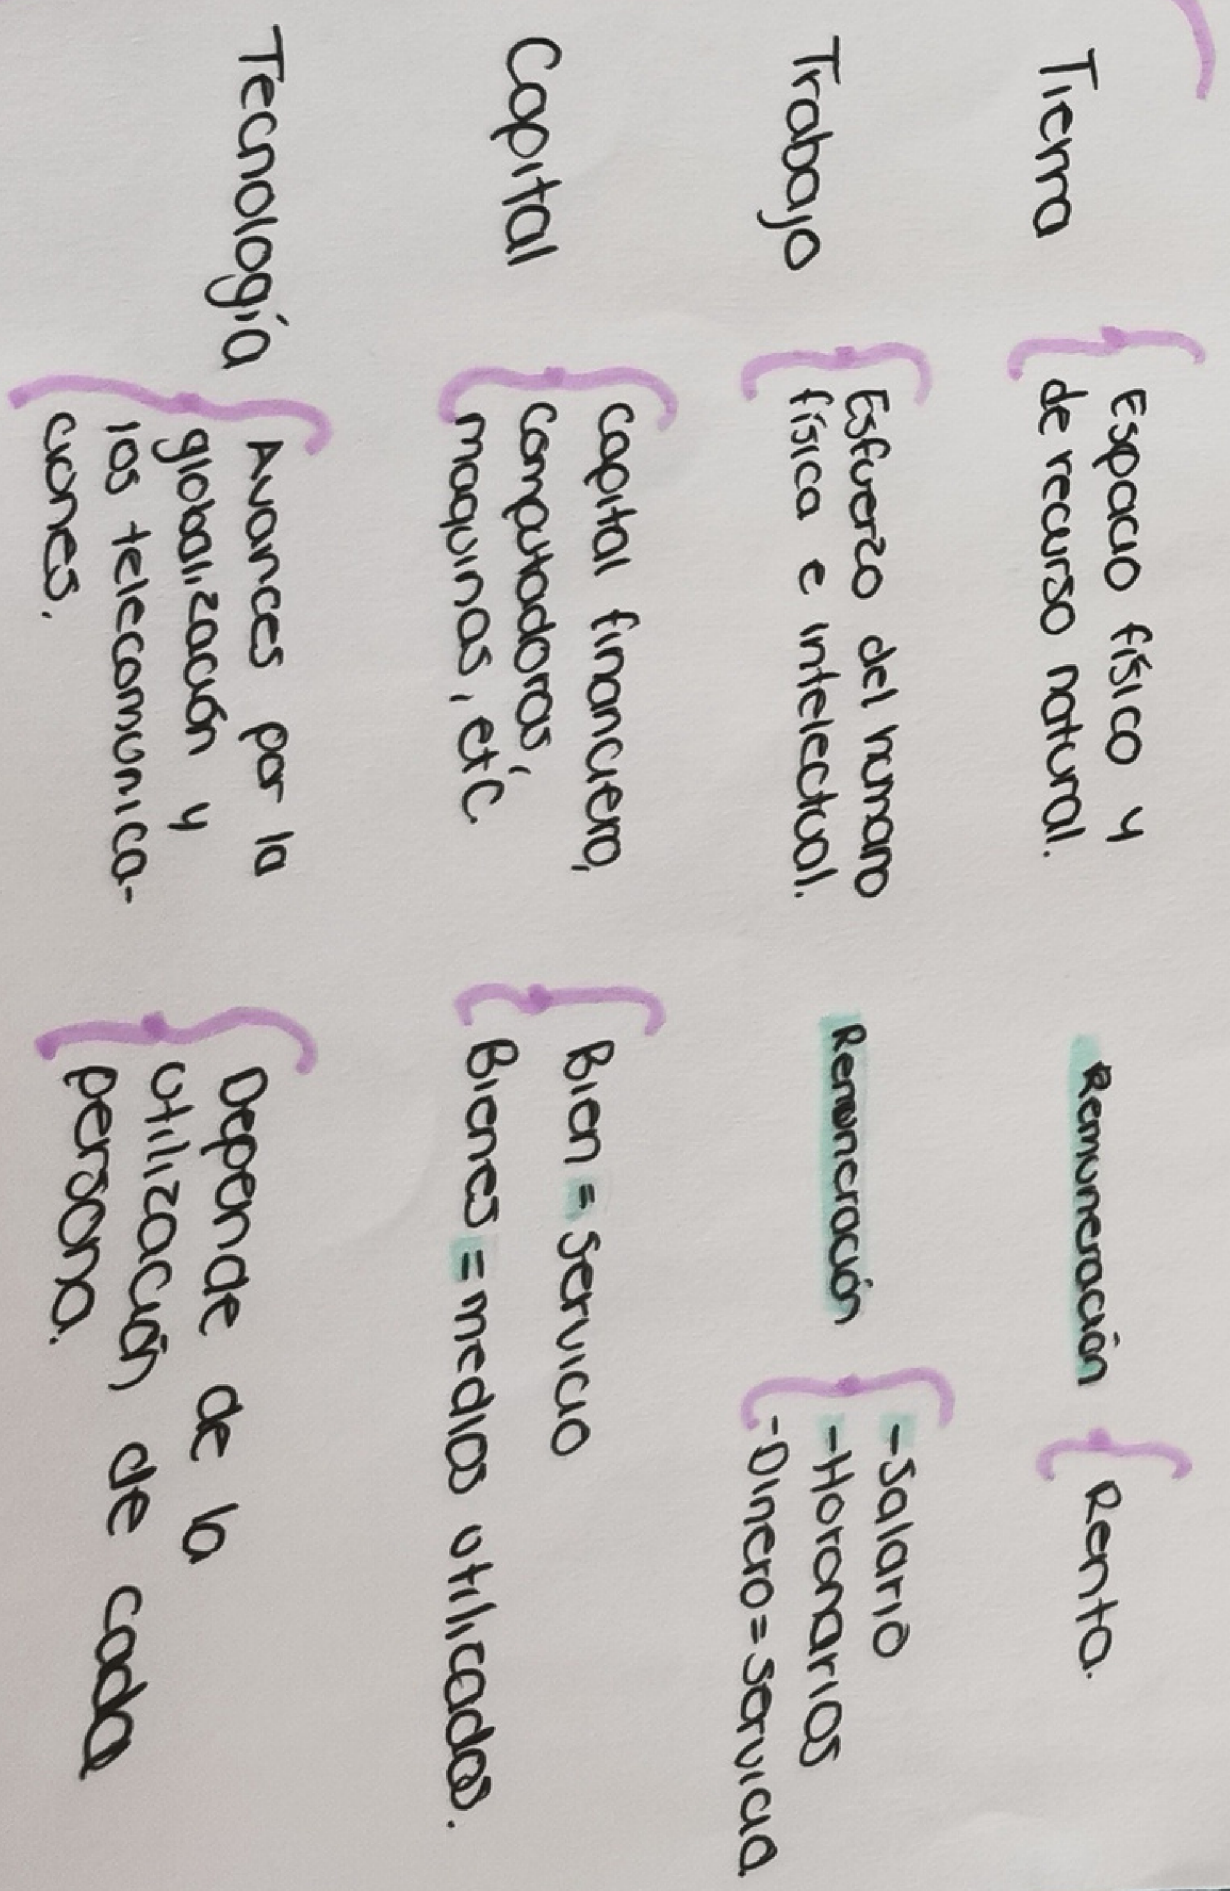 Tierra
Espacio físico y
de recurso natural.
Remuneración
Renta.
Trabajo
Esfuerzo del humano
física e intelectual.
Remuneración
-Salario
-Horonarios
-Dinero=servicio
Capital
Capital financiero,
computadoras,
maquinas, etc.
Bien = servicio
Bienes = medios utilicados.
Tecnología
Avances por la
globalización y
las telecomunica-
ciones.
Depende de la
utilización de cada
persona.